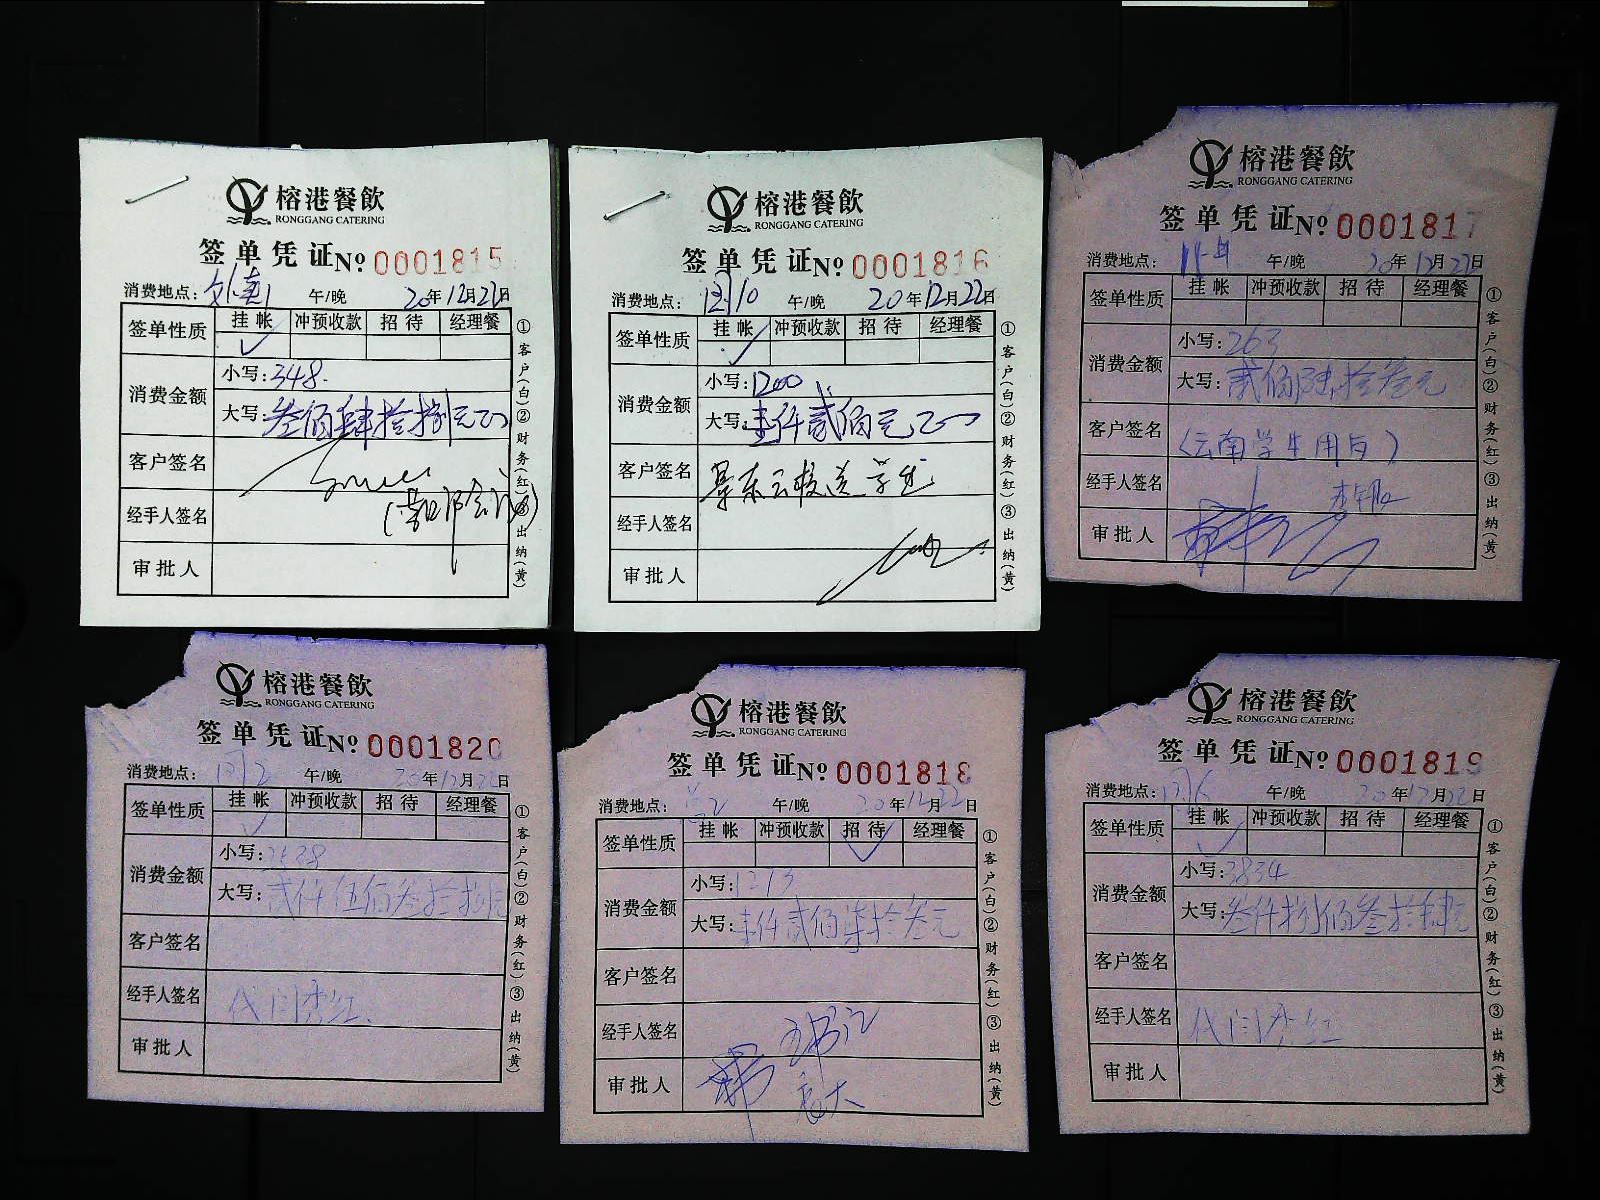 榕港餐飲
RONGGANG CATERING
签单凭证 No 0001815
消费地点: 午/晚 20年12月22日
签单性质 挂帐 冲预收款 招待 经理餐
✓
消费金额 小写: 348.
大写: 叁佰肆拾捌元
客户签名
经手人签名
审批人
①客户(白)②财务(红)③出纳(黄)
榕港餐飲
RONGGANG CATERING
签单凭证 No 0001816
消费地点: 午/晚 20年12月22日
签单性质 挂帐 冲预收款 招待 经理餐
✓
消费金额 小写: 1200
大写: 壹仟贰佰元
客户签名
经手人签名
审批人
①客户(白)②财务(红)③出纳(黄)
榕港餐飲
RONGGANG CATERING
签单凭证 No 0001817
消费地点: 午/晚 20年12月22日
签单性质 挂帐 冲预收款 招待 经理餐
消费金额 小写: 263
大写: 贰佰陆拾叁元
客户签名 (云南学生用)
经手人签名
审批人
①客户(白)②财务(红)③出纳(黄)
榕港餐飲
RONGGANG CATERING
签单凭证 No 0001820
消费地点: 午/晚 20年12月22日
签单性质 挂帐 冲预收款 招待 经理餐
✓
消费金额 小写: 2538
大写: 贰仟伍佰叁拾捌元
客户签名
经手人签名 代闫秀红
审批人
①客户(白)②财务(红)③出纳(黄)
榕港餐飲
RONGGANG CATERING
签单凭证 No 0001818
消费地点: 午/晚 20年12月22日
签单性质 挂帐 冲预收款 招待 经理餐
✓
消费金额 小写: 1273
大写: 壹仟贰佰柒拾叁元
客户签名
经手人签名
审批人
①客户(白)②财务(红)③出纳(黄)
榕港餐飲
RONGGANG CATERING
签单凭证 No 0001819
消费地点: 午/晚 20年12月22日
签单性质 挂帐 冲预收款 招待 经理餐
✓
消费金额 小写: 3834
大写: 叁仟捌佰叁拾肆元
客户签名
经手人签名 代闫秀红
审批人
①客户(白)②财务(红)③出纳(黄)